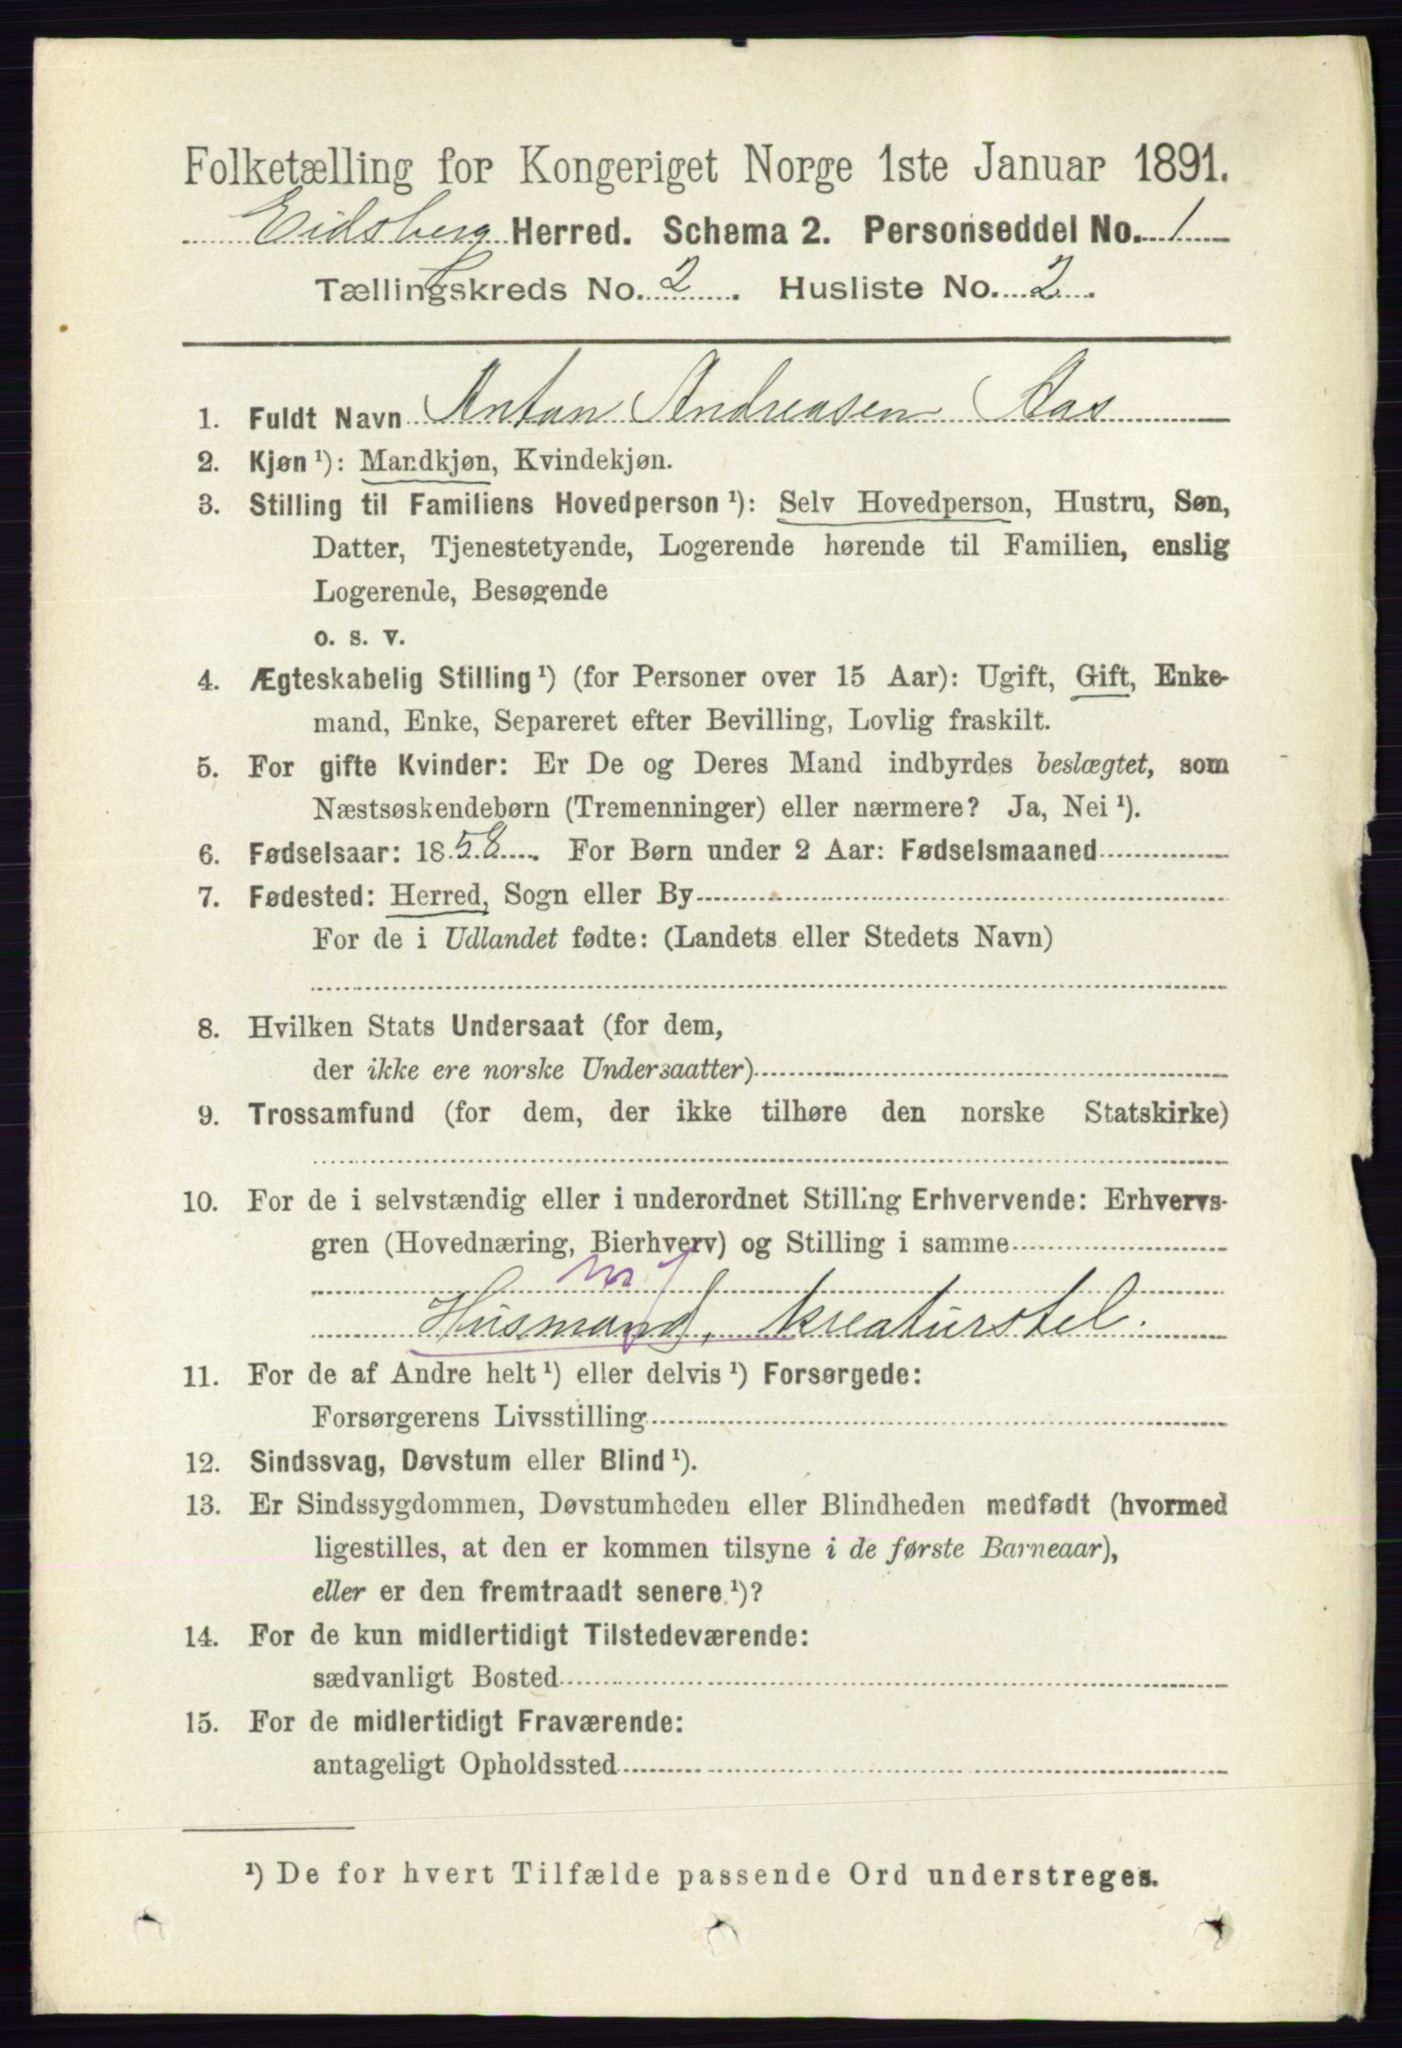 Folketælling for Kongeriget Norge 1ste Januar 1891.
Eidsberg Herred. Schema 2. Personseddel No. 1
Tællingskreds No. 2. Husliste No. 2.
1. Fuldt Navn Anton Andreasen Aas
2. Kjøn ¹): Mandkjøn, Kvindekjøn.
3. Stilling til Familiens Hovedperson ¹): Selv Hovedperson, Hustru, Søn,
Datter, Tjenestetyende, Logerende hørende til Familien, enslig
Logerende, Besøgende
o. s. v.
4. Ægteskabelig Stilling ¹) (for Personer over 15 Aar): Ugift, Gift, Enke-
mand, Enke, Separeret efter Bevilling, Lovlig fraskilt.
5. For gifte Kvinder: Er De og Deres Mand indbyrdes beslægtet, som
Næstsøskendebørn (Tremenninger) eller nærmere? Ja, Nei ¹).
6. Fødselsaar: 1858. For Børn under 2 Aar: Fødselsmaaned
7. Fødested: Herred, Sogn eller By
For de i Udlandet fødte: (Landets eller Stedets Navn)
8. Hvilken Stats Undersaat (for dem,
der ikke ere norske Undersaatter)
9. Trossamfund (for dem, der ikke tilhøre den norske Statskirke)
10. For de i selvstændig eller i underordnet Stilling Erhvervende: Erhvervs-
gren (Hovednæring, Bierhverv) og Stilling i samme
Husmand, kreaturstel.
11. For de af Andre helt ¹) eller delvis ¹) Forsørgede:
Forsørgerens Livsstilling
12. Sindssvag, Døvstum eller Blind ¹).
13. Er Sindssygdommen, Døvstumheden eller Blindheden medfødt (hvormed
ligestilles, at den er kommen tilsyne i de første Barneaar),
eller er den fremtraadt senere ¹)?
14. For de kun midlertidigt Tilstedeværende:
sædvanligt Bosted
15. For de midlertidigt Fraværende:
antageligt Opholdssted
¹) De for hvert Tilfælde passende Ord understreges.